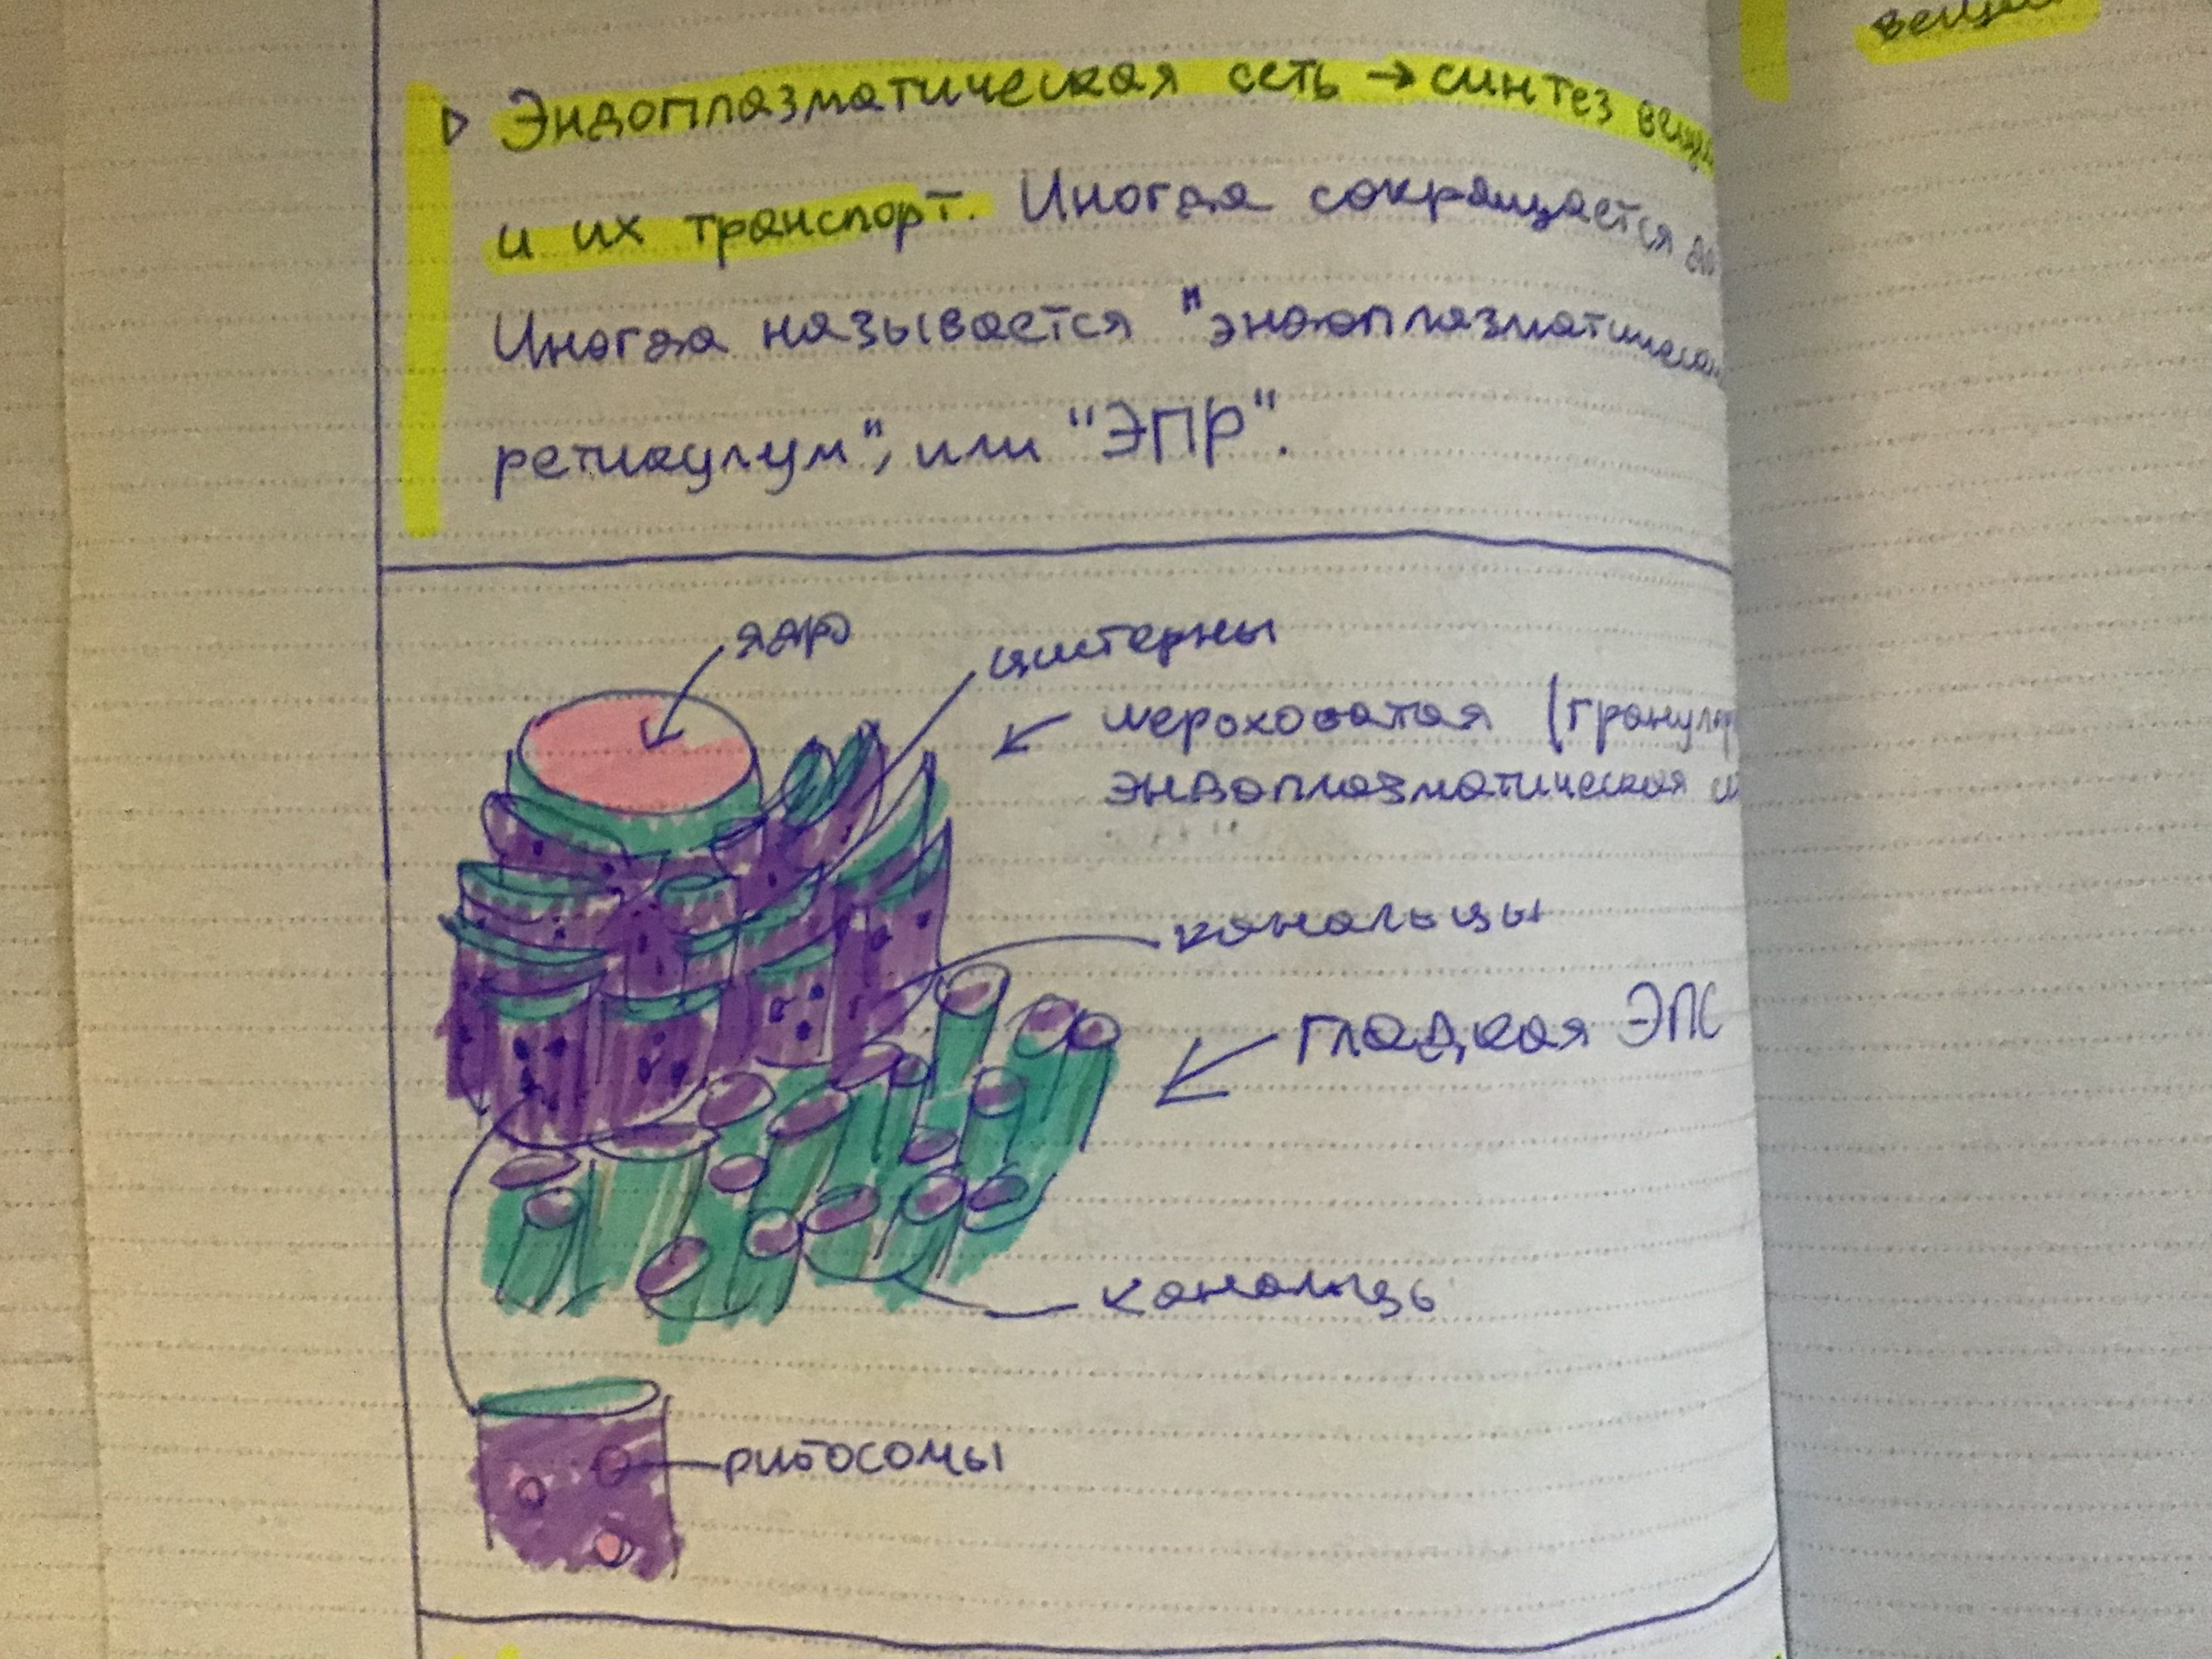 ▷ Эндоплазматическая сеть → синтез
и их транспорт. Иногда сокращается до
Иногда называется "эндоплазматическ
ретикулум", или "ЭПР".
ядро
цистерны
шероховатая (грануляр
эндоплазматическая
канальцы
гладкая ЭПС
канальцы
рибосомы